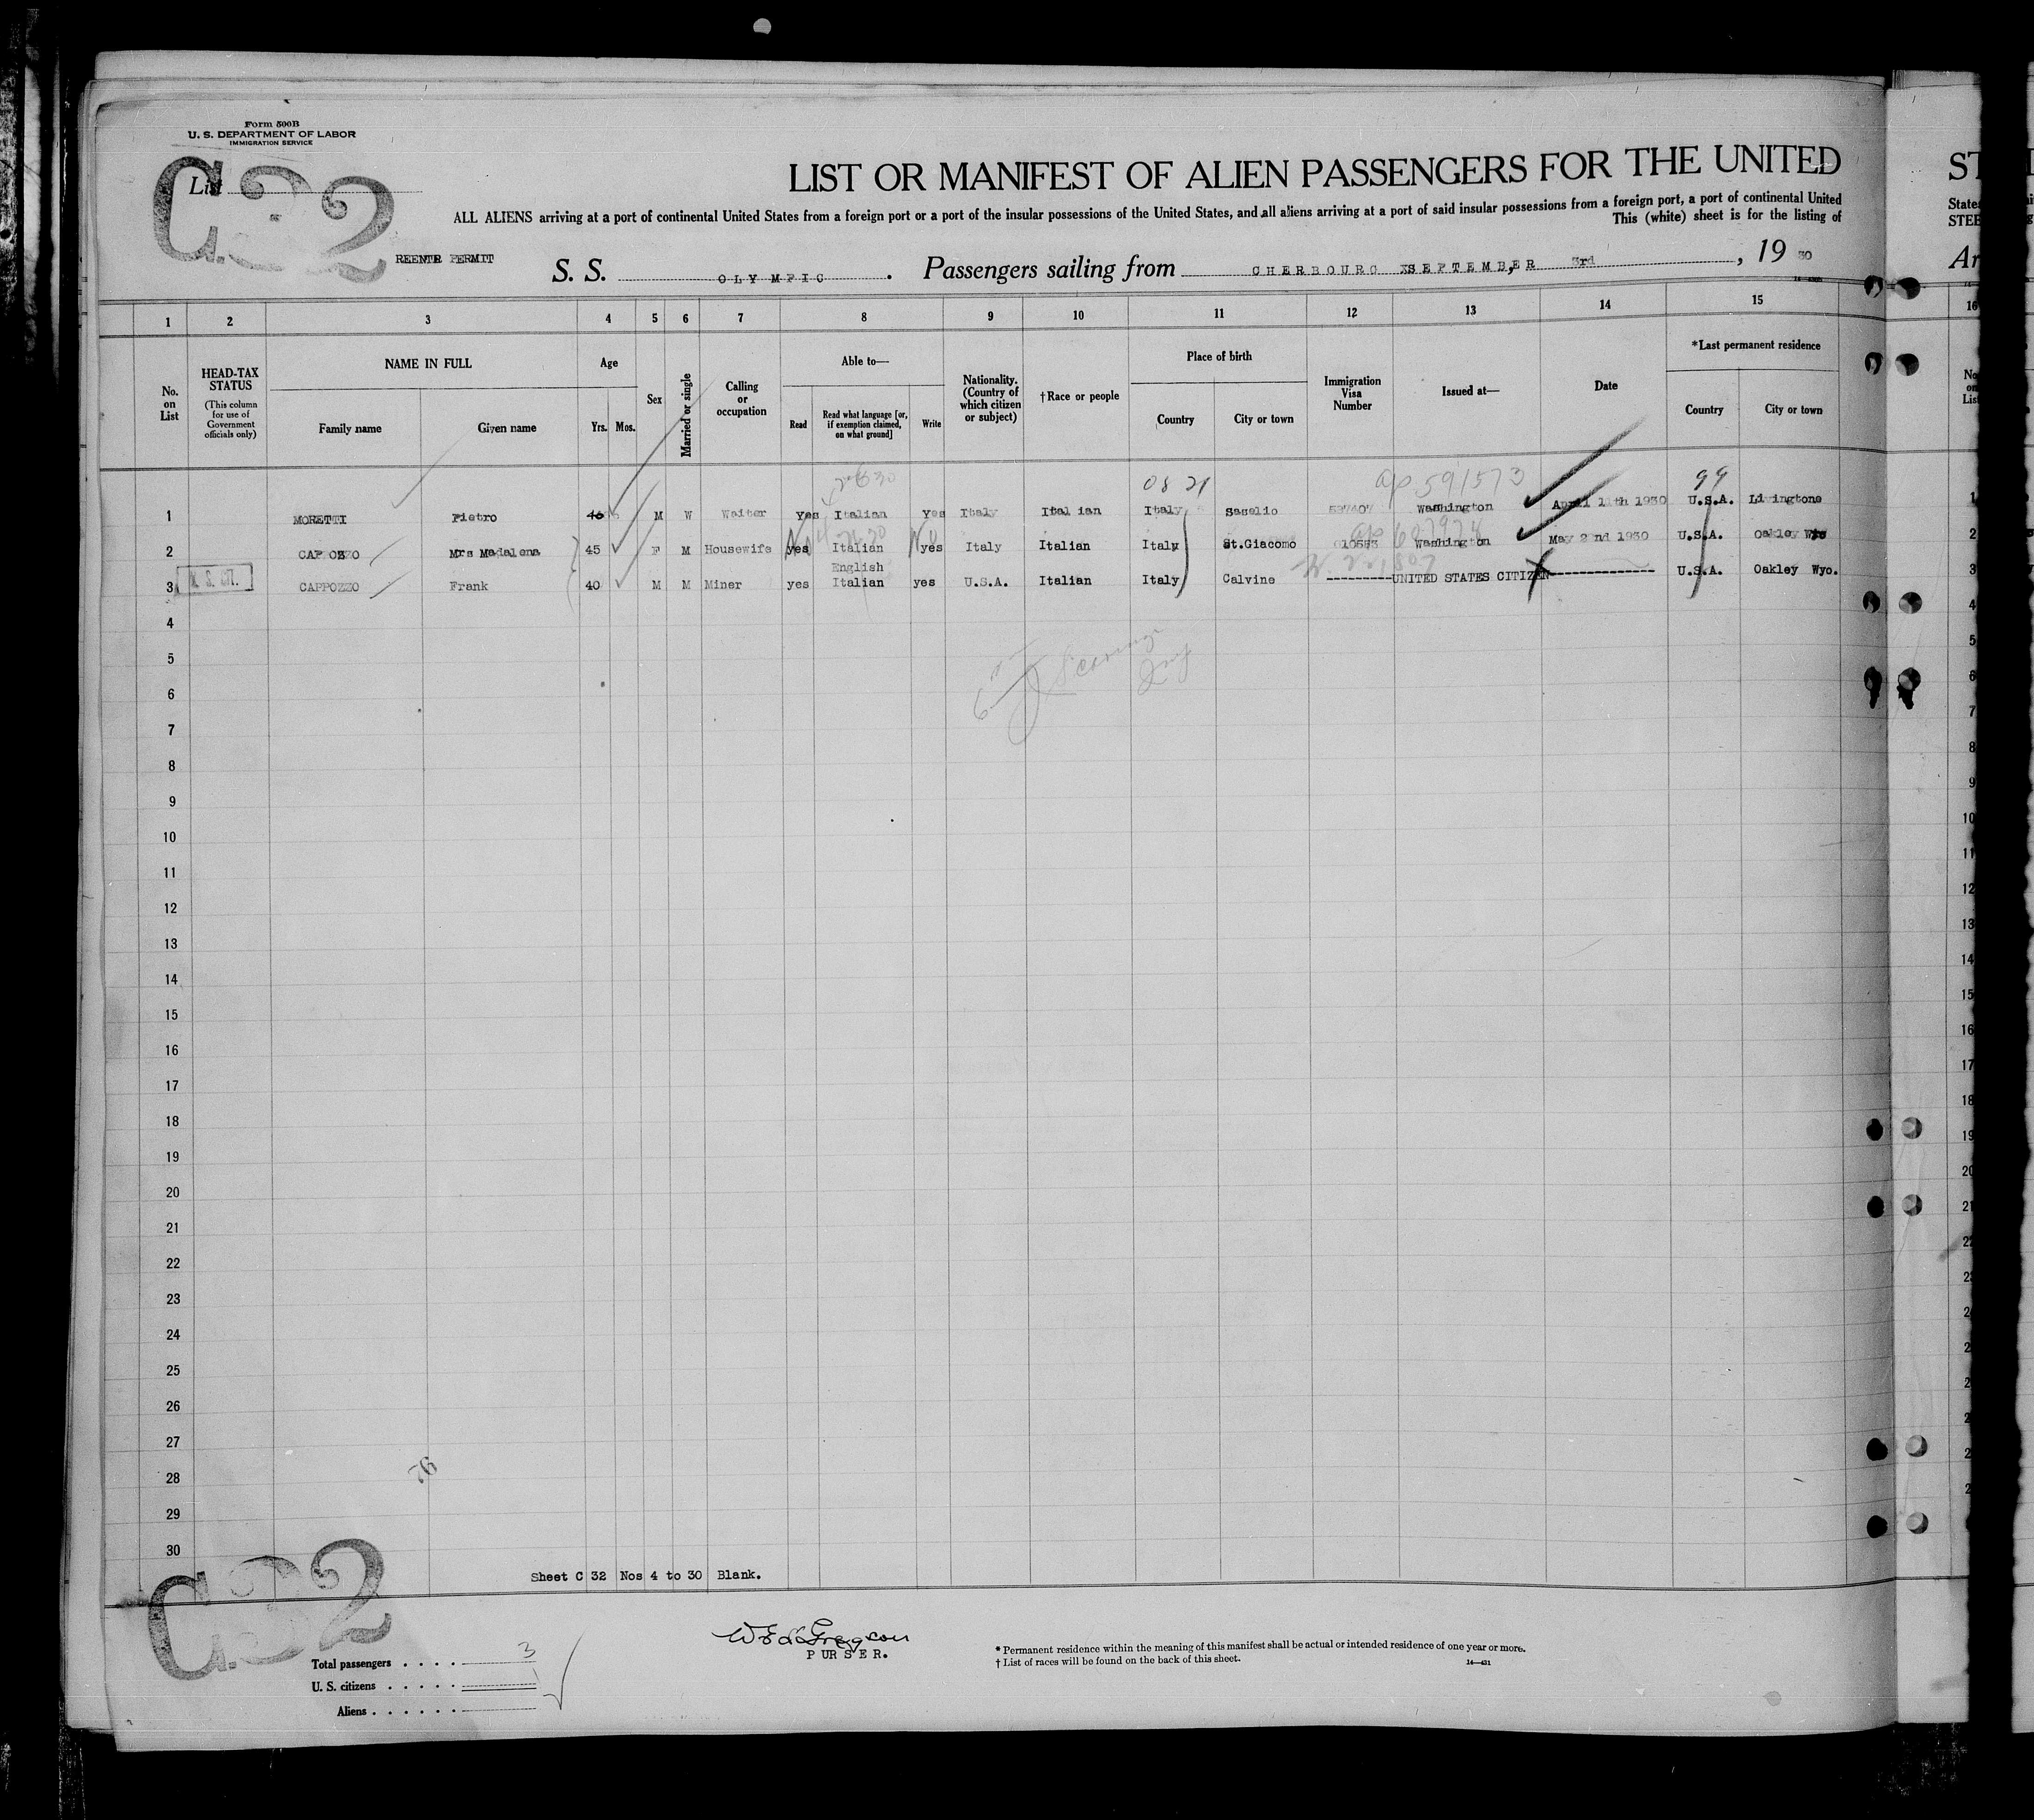 Form 500B
U. S. DEPARTMENT OF LABOR
IMMIGRATION SERVICE
List
C.32
LIST OR MANIFEST OF ALIEN PASSENGERS FOR THE UNITED
ST
ALL ALIENS arriving at a port of continental United States from a foreign port or a port of the insular possessions of the United States, and all aliens arriving at a port of said insular possessions from a foreign port, a port of continental United
States
This (white) sheet is for the listing of
STEE
REENTR PERMIT
S. S. OLYMPIC. Passengers sailing from CHERBOURG SEPTEMBER 3rd, 19 30
Ar
1 2 3 4 5 6 7 8 9 10 11 12 13 14 15
16
No. on List
HEAD-TAX STATUS
(This column for use of Government officials only)
NAME IN FULL
Family name Given name
Age
Yrs. Mos.
Sex
Married or single
Calling or occupation
Able to—
Read Read what language [or, if exemption claimed, on what ground] Write
Nationality. (Country of which citizen or subject)
†Race or people
Place of birth
Country City or town
Immigration Visa Number
Issued at—
Date
*Last permanent residence
Country City or town
No. on List
08 21 ap 591573 99
1 MORETTI Pietro 46 M W Waiter Yes Italian Yes Italy Ital ian Italy Saselio Washington April 11th 1930 U.S.A. Livingtone
2 CAPOZZO Mrs Madalena 45 F M Housewife yes Italian yes Italy Italian Italy St.Giacomo 010553 Washington May 2nd 1930 U.S.A. Oakley
English
3 CAPPOZZO Frank 40 M M Miner yes Italian yes U.S.A. Italian Italy Calvine ----------UNITED STATES CITIZEN--------------- U.S.A. Oakley Wyo.
4
5
6
7
8
9
10
11
12
13
14
15
16
17
18
19
20
21
22
23
24
25
26
27
92
28
29
30
Sheet C 32 Nos 4 to 30 Blank.
C.32
PURSER.
Total passengers . . . . 3
U. S. citizens . . . . . 1
Aliens . . . . . .
* Permanent residence within the meaning of this manifest shall be actual or intended residence of one year or more.
† List of races will be found on the back of this sheet.